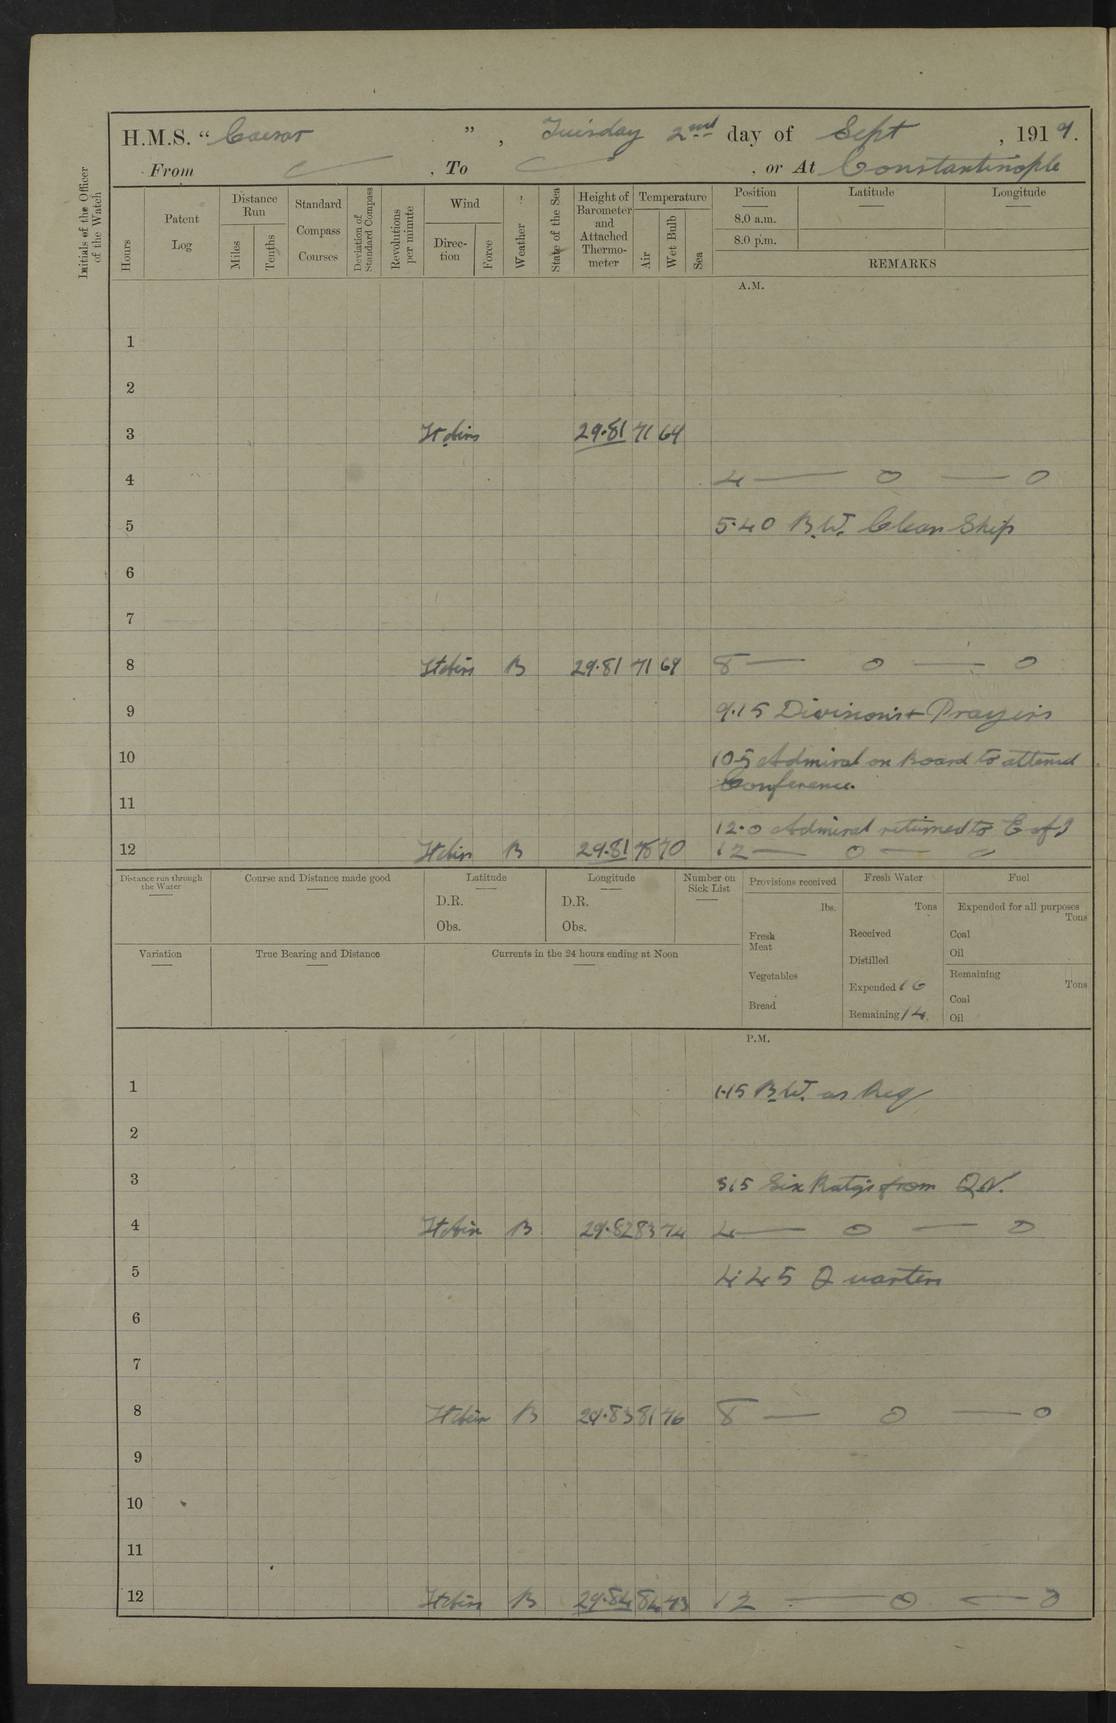 H.M.S. “ Caesar ” , Tuesday 2nd day of Sept , 1919.
From — , To — , or At Constantinople
Initials of the Officer of the Watch
Hours
Patent Log
Distance Run
Miles
Tenths
Standard Compass Courses
Deviation of Standard Compass
Revolutions per minute
Wind
Direction
Force
Weather
State of the Sea
Height of Barometer and Attached Thermometer
Temperature
Air
Wet Bulb
Sea
Position Latitude Longitude
8.0 a.m.
8.0 p.m.
REMARKS
A.M.
1
2
3 29.81 71 64
4 4 — 0 — 0
5 5.40 B.W. Clean Ship
6
7
8 B 29.81 71 69 8 — 0 — 0
9 9.15 Divisions + Prayers
10 10.5 Admiral on board to attend
Conference.
11
12.0 Admiral returned to E of I
12 B 29.81 78 70 12 — 0 — 0
Distance run through the Water
Course and Distance made good
Latitude
D.R.
Obs.
Longitude
D.R.
Obs.
Number on Sick List
Provisions received
lbs.
Fresh Meat
Vegetables
Bread
Fresh Water
Tons
Received
Distilled
Expended 16
Remaining 14.
Fuel
Expended for all purposes
Tons
Coal
Oil
Remaining
Tons
Coal
Oil
Variation
True Bearing and Distance
Currents in the 24 hours ending at Noon
P.M.
1 1.15 B.W. as Req
2
3 3.15 Six Ratgs from Q.N.
4 B 29.82 83 74 4 — 0 — 0
5 4.45 Quarters
6
7
8 B 29.83 81 76 8 — 0 — 0
9
10
11
12 B 29.84 84 73 12 — 0 — 0